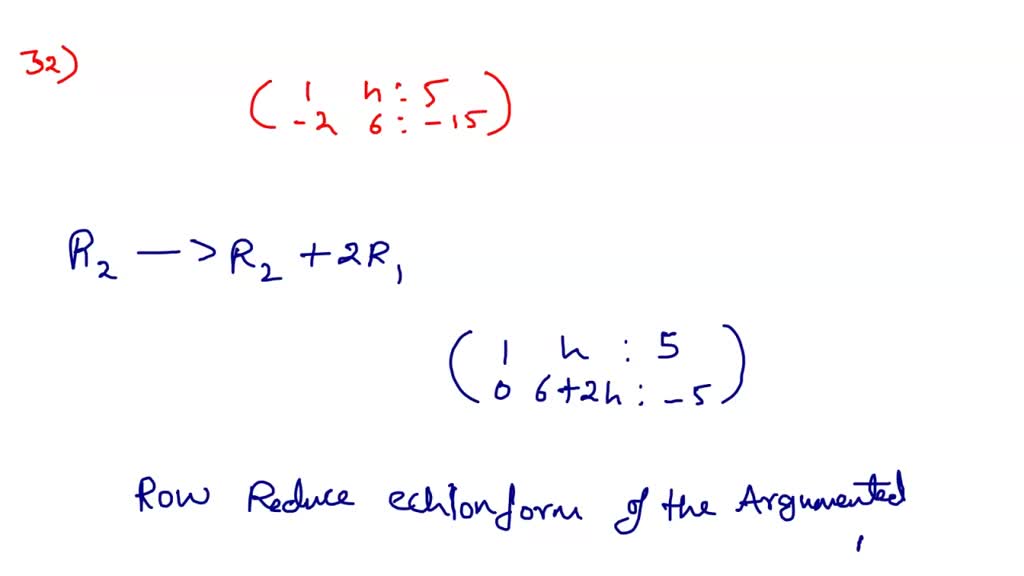 32)
( 1 h : 5
-2 6 : -15 )
R2 —> R2 + 2R1
( 1 h : 5
0 6+2h : -5 )
Row Reduce echlonform of the Argumented